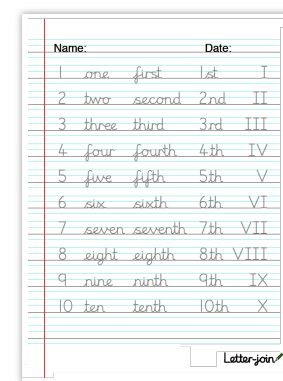 Name: Date:
1 one first 1st I
2 two second 2nd II
3 three third 3rd III
4 four fourth 4th IV
5 five fifth 5th V
6 six sixth 6th VI
7 seven seventh 7th VII
8 eight eighth 8th VIII
9 nine ninth 9th IX
10 ten tenth 10th X
Letter-join